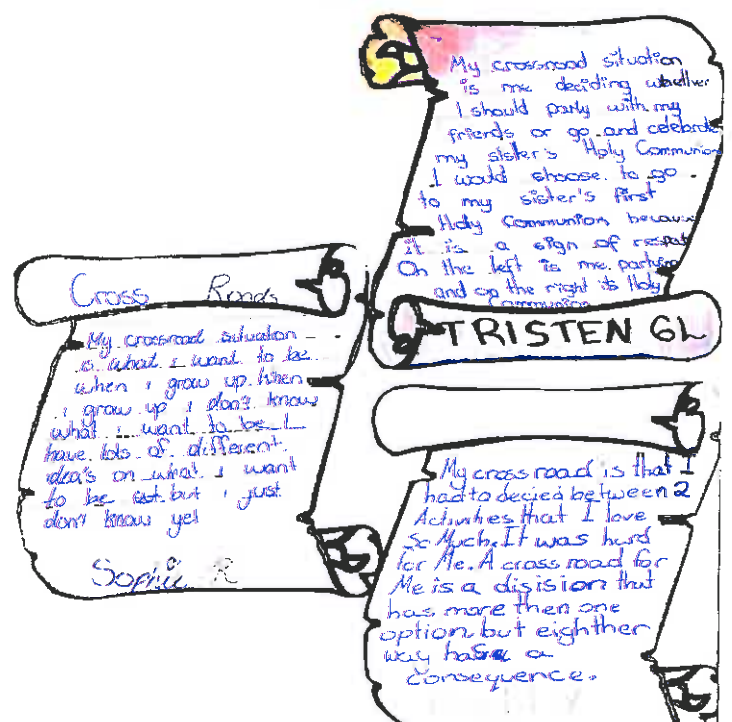 My crossroad situation
is me deciding whether
I should party with my
friends or go and celebrate
my sister's Holy Communion
I would shoose to go.
to my sister's first
Holy Communion because
it is a sign of respect
On the left is me partying
and on the right its Holy
Communion
TRISTEN 6L
Cross Roads
My crossroad situation
is what i want to be
when i grow up. When
i grow up i don't know
what i want to be I
have lots of different
idea's on what I want
to be but i just
don't know yet
Sophie R
My cross road is that I
had to decied between 2
Activities that I love
So Much. It was hard
for Me. A cross road for
Me is a disision that
has more then one
option but eighther
way has a
consequence.